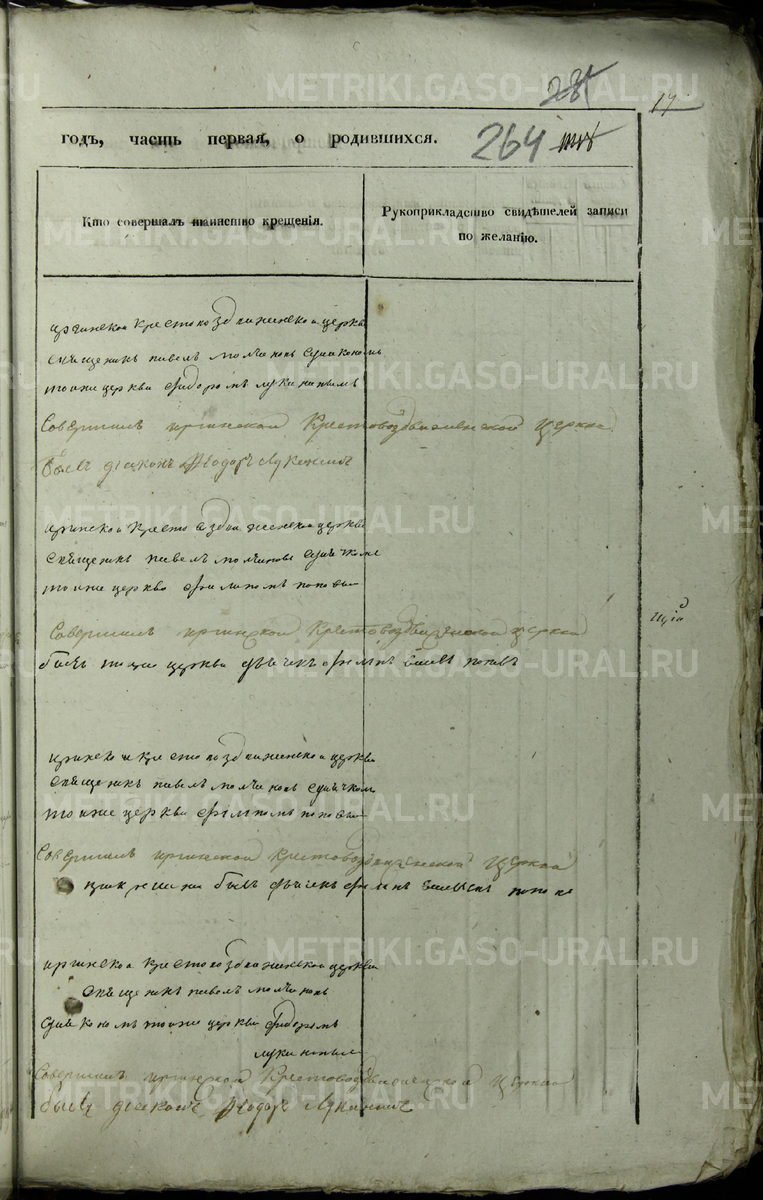 281
17
годъ, часть первая, о родившихся.
264
Кто совершалъ таинство крещенія.
Рукоприкладство свидѣтелей записи
по желанію.
иргинской крестовоздвиженской церкви
священникъ павелъ молчановъ сдиакономъ
тояже церкви фидоромъ лукинымъ
Совершалъ иргинской Крестовоздвиженской Церкви
былъ діаконъ Ѳеодоръ Лукинъ
иргинской крестовоздвиженской церкви
священникъ павелъ молчановъ
тояже церкви филипомъ поповымъ
Совершалъ иргинской Крестовоздвиженской церкви
былъ тояже церкви дьячекъ филипъ поповъ
иргинской крестовоздвиженской церкви
священникъ павелъ молчановъ сдьячкомъ
тояже церкви филипомъ поповымъ
Совершалъ иргинской Крестовоздвиженской Церкви
при крещении былъ дьячекъ филипъ поповъ
иргинской крестовоздвиженской церкви
священникъ павелъ молчановъ
сдиакономъ тояже церкви фидоромъ
лукинымъ
Совершалъ иргинской Крестовоздвиженской Церкви
былъ діаконъ Ѳеодоръ Лукинъ
METRIKI.GASO-URAL.RU